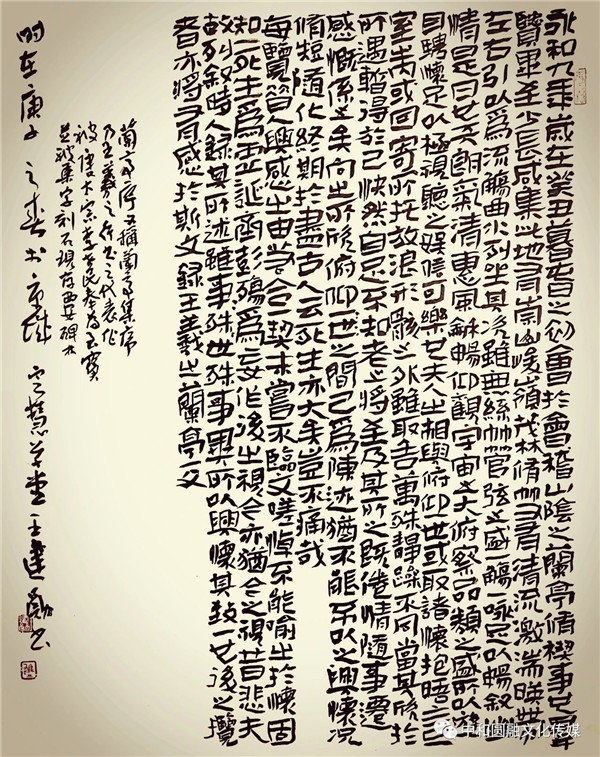 永和九年歲在癸丑暮春之初會於會稽山陰之蘭亭脩禊事也群
賢畢至少長咸集此地有崇山峻嶺茂林脩竹又有清流激湍暎帶
左右引以爲流觴曲水列坐其次雖無絲竹管弦之盛觴一詠足以暢敘幽
情是日也天朗氣清惠風龢暢仰觀宇宙之大俯察品類之盛所以遊
目騁懷足以極視聽之娛信可樂也夫人之相與俯仰一世或取諸懷抱晤言一
室內或因寄所托放浪形骸之外雖取舍萬殊靜躁不同當其欣於
所遇暫得於己快然自足不知老之將至及其所之既倦情隨事遷
感慨係之矣向之所欣俯仰一世之間已爲陳迹猶不能不以之興懷況
脩短隨化終期於盡古人云死生亦大矣豈不痛哉
每覽昔人興感之由若合一契未嘗不臨文嗟悼不能喻之於懷固
知一死生爲虛誕齊彭殤爲妄作後之視今亦猶今之視昔悲夫
故列敘時人錄其所述雖事殊世殊事異所以興懷其致一也後之攬
者亦將有感於斯文錄王羲之蘭亭一文
蘭亭序又稱蘭亭集序
乃王羲之行書之代表作
被唐太宗李世民奉為至寶
並被集字刻石現存西安碑林
時在庚子之春書於
雲慧草堂王建勛書
中和圆融文化传媒